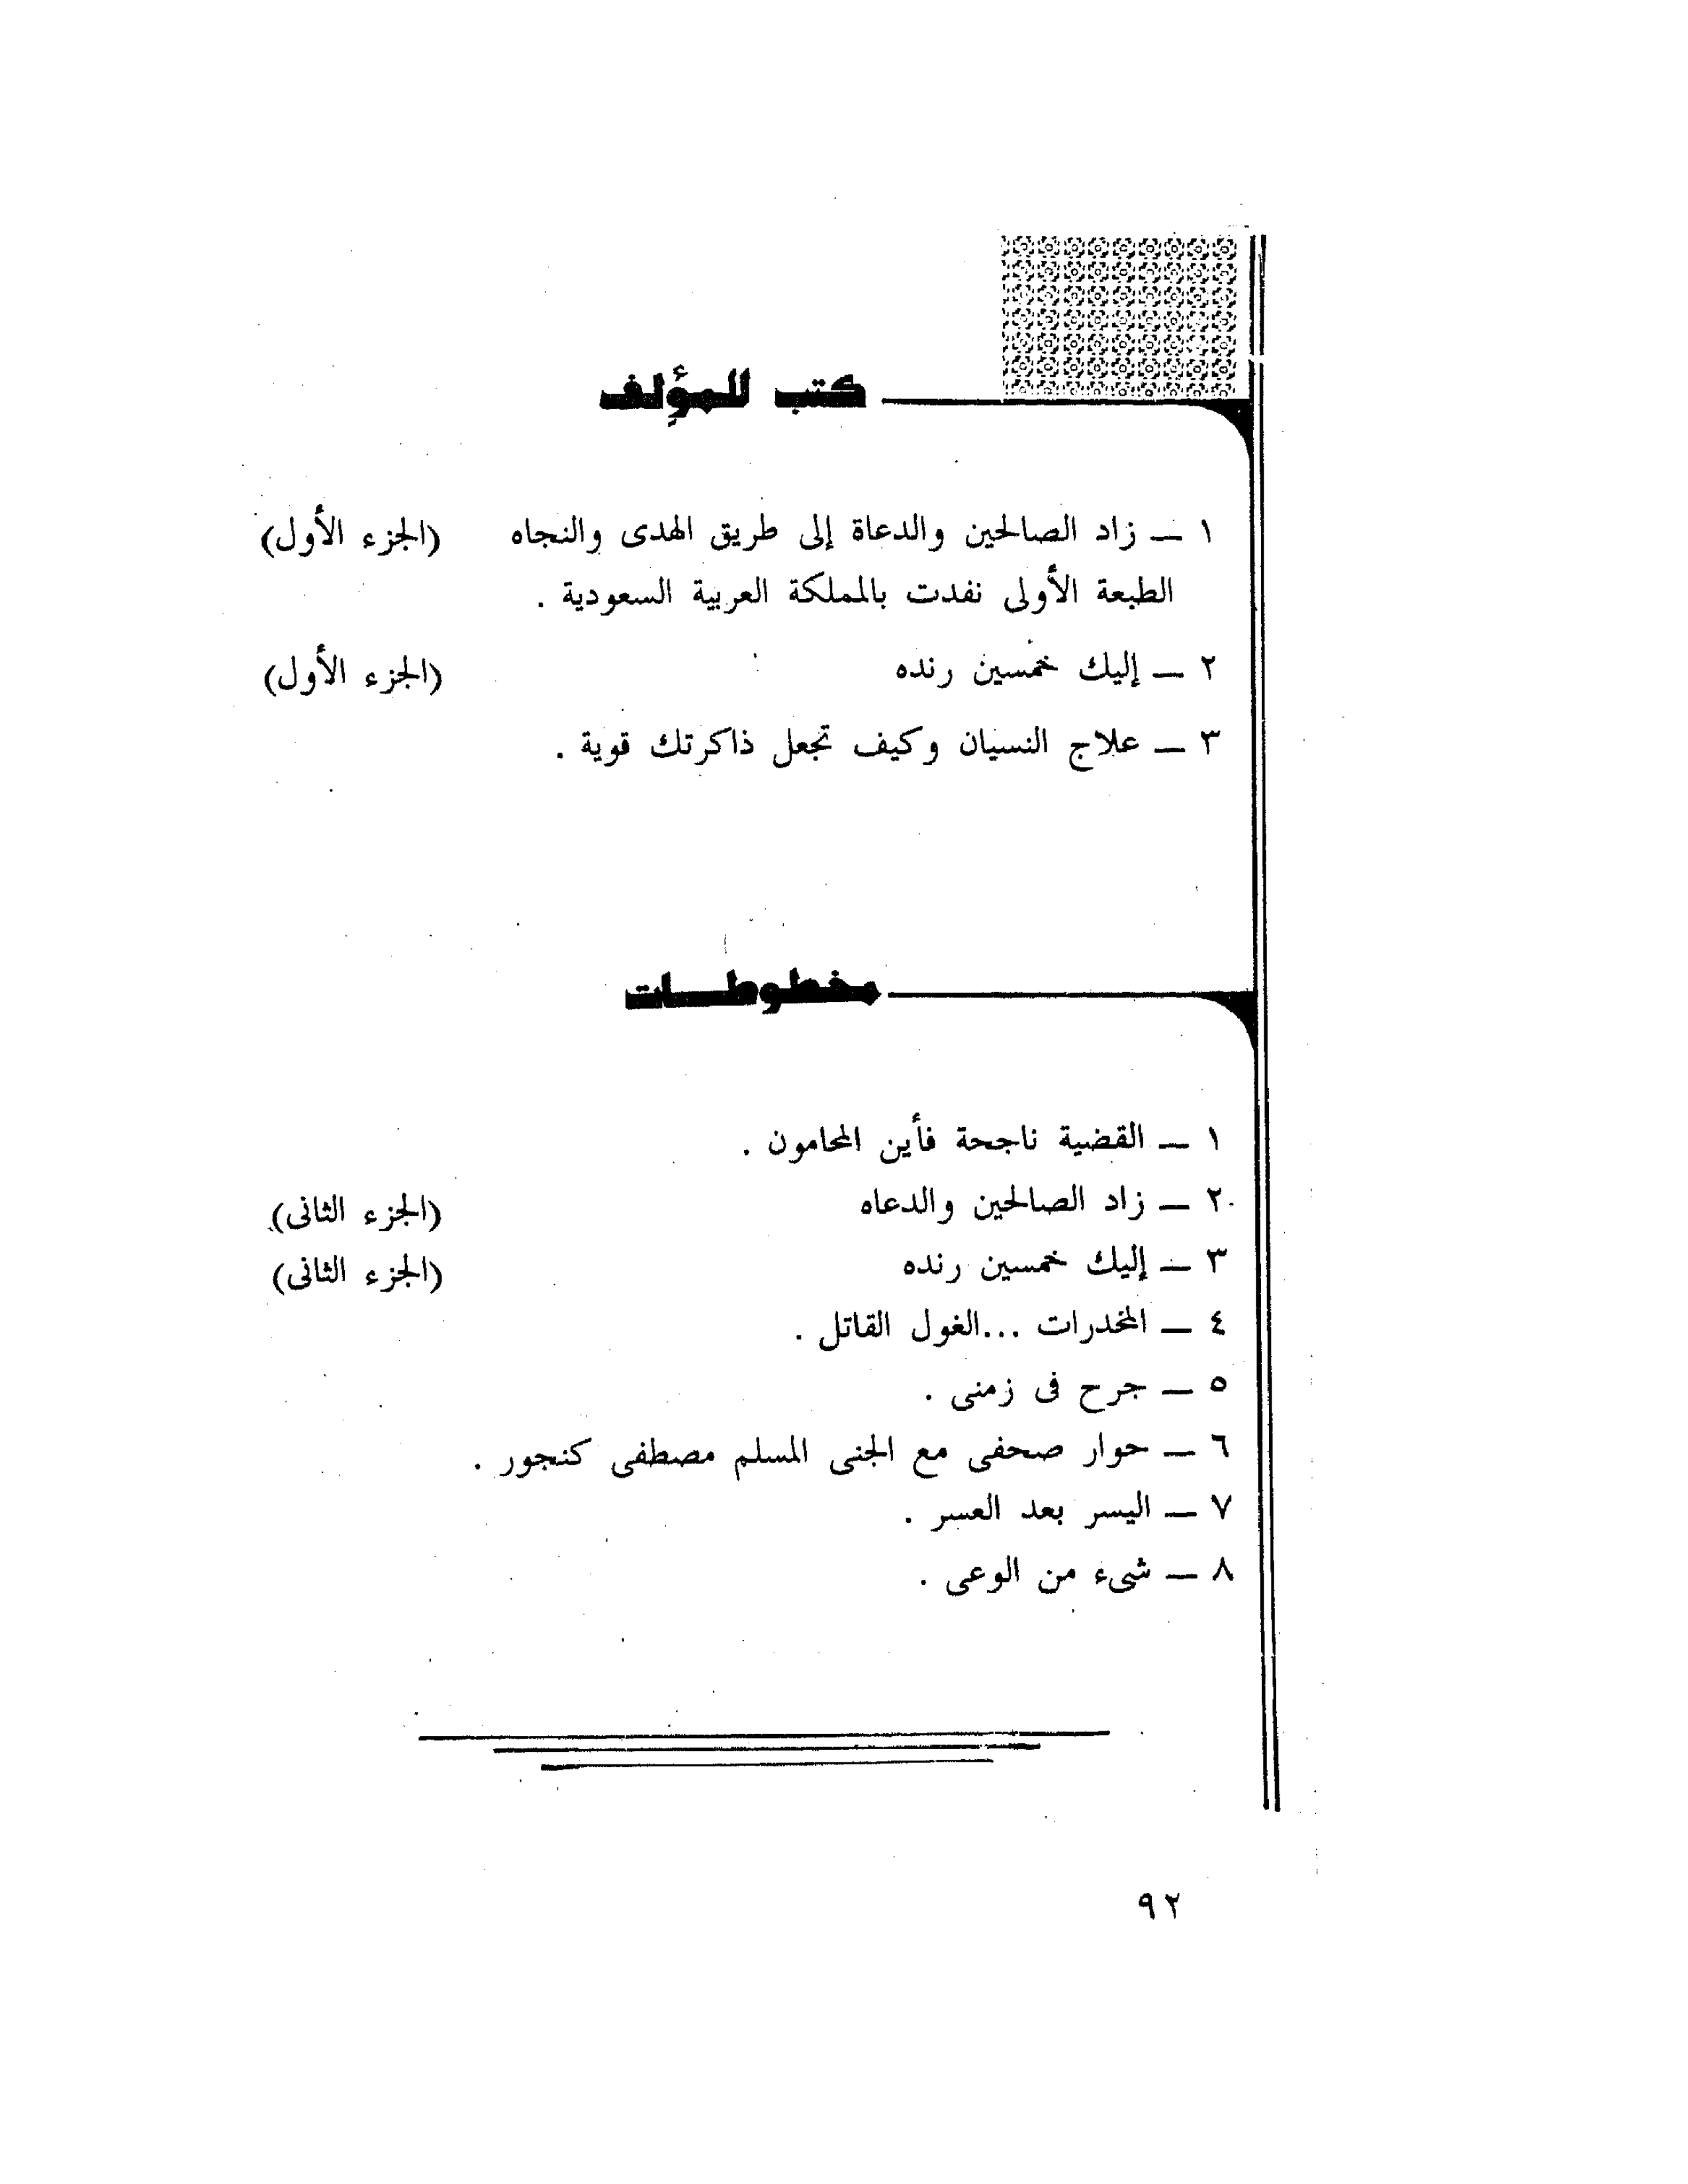 كتب للمؤلف
١ — زاد الصالحين والدعاة إلى طريق الهدى والنجاه (الجزء الأول)
الطبعة الأولى نفدت بالمملكة العربية السعودية .
٢ — إليك خمسين رنده (الجزء الأول)
٣ — علاج النسيان وكيف تجعل ذاكرتك قوية .
مخطوطـــات
١ — القضية ناجحة فأين المحامون .
٢ — زاد الصالحين والدعاه (الجزء الثانى)
٣ — إليك خمسين رنده (الجزء الثانى)
٤ — المخدرات ...الغول القاتل .
٥ — جرح فى زمنى .
٦ — حوار صحفى مع الجنى المسلم مصطفى كنجور .
٧ — اليسر بعد العسر .
٨ — شىء من الوعى .
٩٢